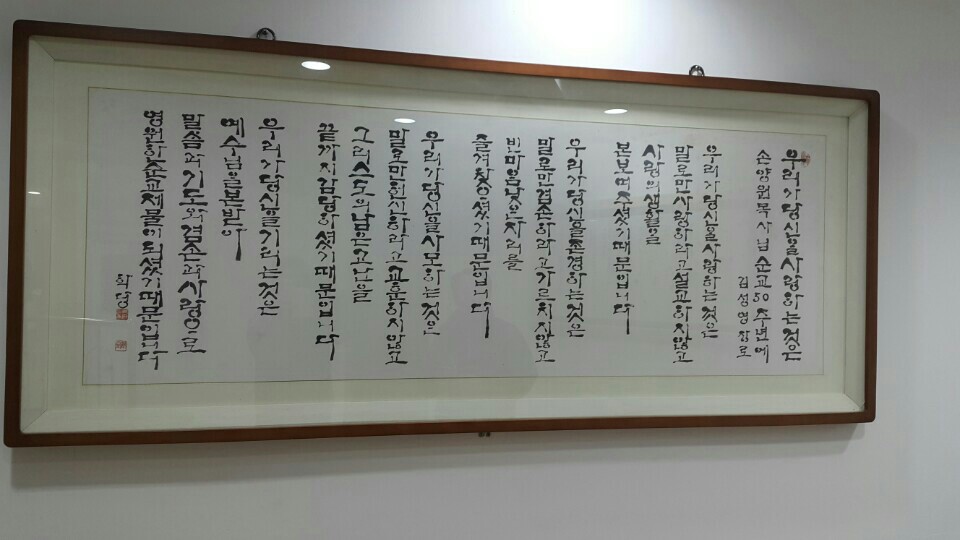 우리가 당신을 사랑하는 것은
손양원 목사님 순교 50주년에
김성영 장로
우리가 당신을 사랑하는 것은
말로만 사랑하라고 설교하지 않고
사랑의 생활을
본보여 주셨기 때문입니다
우리가 당신을 존경하는 것은
말로만 겸손하라고 가르치지 않고
빈 마음 낮은 자리를
즐겨 찾으셨기 때문입니다
우리가 당신을 사모하는 것은
말로만 헌신하라고 교훈하지 않고
그리스도의 남은 고난을
끝까지 감당하셨기 때문입니다
우리가 당신을 기리는 것은
예수님을 본받아
말씀과 기도와 겸손과 사랑으로
영원한 순교 제물이 되셨기 때문입니다